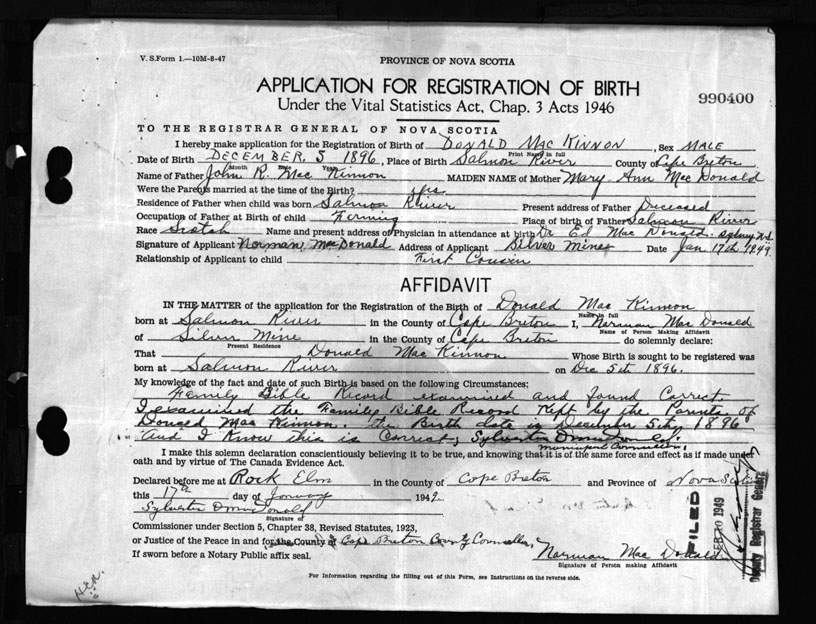 V. S. Form 1.—10M-8-47
PROVINCE OF NOVA SCOTIA
APPLICATION FOR REGISTRATION OF BIRTH
Under the Vital Statistics Act, Chap. 3 Acts 1946
990400
TO THE REGISTRAR GENERAL OF NOVA SCOTIA
I hereby make application for the Registration of Birth of DONALD MAC KINNON, Sex MALE
Print Name in full
Date of Birth DECEMBER, 5 1896, Place of Birth Salmon River County of Cape Breton
Month Day Year
Name of Father John R. Mac Kinnon MAIDEN NAME of Mother Mary Ann Mac Donald
Were the Parents married at the time of the Birth? yes
Residence of Father when child was born Salmon River Present address of Father Deceased
Occupation of Father at Birth of child Ferming Place of birth of Father Salmon River
Race Scotch Name and present address of Physician in attendance at birth Dr Ed Mac Donald. Sydney N.S.
Signature of Applicant Norman MacDonald Address of Applicant Silver Mines Date Jan 17th 1949.
Relationship of Applicant to child First Cousin
AFFIDAVIT
IN THE MATTER of the application for the Registration of the Birth of Donald Mac Kinnon
Name in full
born at Salmon River in the County of Cape Breton I, Norman Mac Donald
Name of Person Making Affidavit
of Silver Mine in the County of Cape Breton do solemnly declare:
Present Residence
That Donald Mac Kinnon Whose Birth is sought to be registered was
born at Salmon River on Dec 5th 1896.
My knowledge of the fact and date of such Birth is based on the following Circumstances:
Family Bible Record examined and found Correct.
I examined the Family Bible Record Kept by the Parents of
Donald Mac Kinnon. the Birth date is December 5th, 1896
and I Know this is Correct, Sylvester
Municipal
I make this solemn declaration conscientiously believing it to be true, and knowing that it is of the same force and effect as if made under
oath and by virtue of The Canada Evidence Act.
Declared before me at Rock Elm in the County of Cape Breton and Province of Nova Scotia
this 17th day of January 194
Sylvester
Signature of
Commissioner under Section 5, Chapter 38, Revised Statutes, 1923,
or Justice of the Peace in and for the County of Cape Breton County
If sworn before a Notary Public affix seal.
Norman Mac Donald
Signature of Person making Affidavit
For Information regarding the filling out of this Form, see Instructions on the reverse side.
FILED
FEB 20 1949
Deputy Registrar General